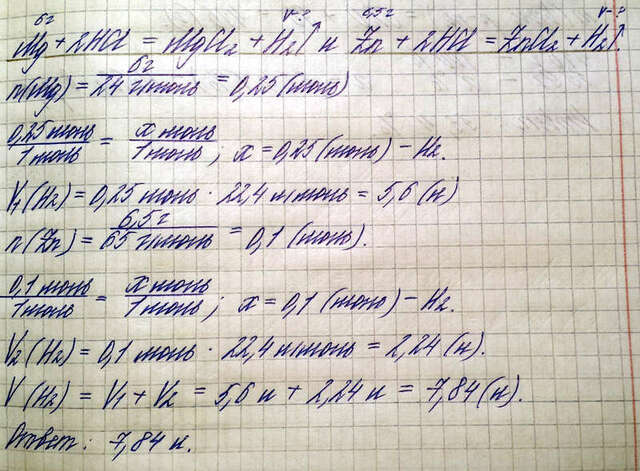 6г V-? 6,5г V-?
Mg + 2HCl = MgCl₂ + H₂↑ и Zn + 2HCl = ZnCl₂ + H₂↑.
n(Mg) = 6г / 24 г/моль = 0,25 (моль)
0,25 моль / 1 моль = x моль / 1 моль ; x = 0,25 (моль) – H₂.
V₁(H₂) = 0,25 моль · 22,4 л/моль = 5,6 (л)
n(Zn) = 6,5г / 65 г/моль = 0,1 (моль).
0,1 моль / 1 моль = x моль / 1 моль ; x = 0,1 (моль) – H₂.
V₂(H₂) = 0,1 моль · 22,4 л/моль = 2,24 (л).
V(H₂) = V₁ + V₂ = 5,6 л + 2,24 л = 7,84 (л).
Ответ: 7,84 л.